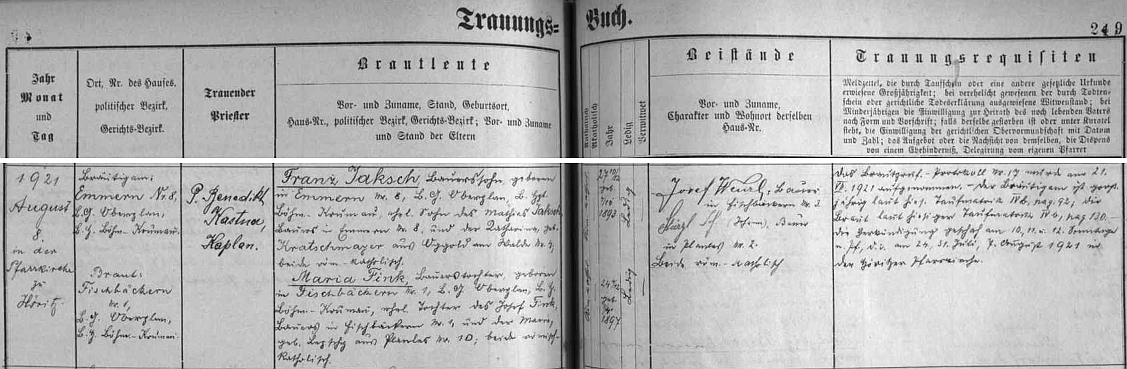 Trauungs=
Buch.
249
Jahr
Monat
und
Tag
Ort, Nr. des Hauses,
politischer Bezirk,
Gerichts-Bezirk.
Trauender
Priester
Brautleute
Vor- und Zuname, Stand, Geburtsort,
Haus-Nr., politischer Bezirk, Gerichts-Bezirk; Vor- und Zuname
und Stand der Eltern
Katholisch
Akatholisch
Jahr
Ledig
Verwitwet
Beistände
Vor- und Zuname,
Charakter und Wohnort derselben
Haus-Nr.
Trauungsrequisiten
Meldzettel, die durch Taufschein oder eine andere gesetzliche Urkunde
erwiesene Großjährigkeit; bei verehelicht gewesenen der durch Todten-
schein oder gerichtliche Todeserklärung ausgewiesene Witwenstand; bei
Minderjährigen die Einwilligung zur Heirath des noch lebenden Vaters
nach Form und Vorschrift; falls derselbe gestorben ist oder unter Kuratel
steht, die Einwilligung der gerichtlichen Obervormundschaft mit Datum
und Zahl; das Aufgebot oder die Nachsicht von demselben, die Dispens
von einem Ehehinderniß, Delegirung vom eigenen Pfarrer
1921
August
8.
in der
Pfarrkirche
zu
Höritz.
Bräutigam:
Emmern Nr. 8,
B.G. Oberplan,
B.H. Böhm-Krumau.
Braut:
Fischbäckern
Nr. 1,
B.G. Oberplan,
B.H. Böhm-Krumau.
P. Benedikt
Kastner,
Kaplan.
Franz Jaksch, Bauerssohn, geboren
in Emmern Nr. 8, B.G. Oberplan,
Böhm. Krumau, ehel. Sohn des Mathias Jaksch,
Bauers in Emmern Nr. 8, und der Katharina, geb.
Kratschmayer aus
beide röm.-katholisch.
Maria Fink, Bauerstochter, geboren
in Fischbäckern Nr. 1, B.G. Oberplan,
Böhm-Krumau, ehel. Tochter des Josef Fink,
Bauers in Fischbäckern Nr. 1, und der Maria,
geb. aus Planles Nr. 10; beide römisch-
katholisch.
1893
Ledig
1897
Ledig
Josef Bauer
in Fischbäckern Nr.
Bauer
in Planles Nr. 2.
Beide röm.-katholisch
Das Brautpr.-Protokoll Nr. 17 wurde am 21.
1921 aufgenommen. Der Bräutigam ist groß-
jährig laut Taufmatrik pag. 92, die
Braut laut hiesiger Taufmatrik pag. 120.
Die Verkündigung geschah am 10., 11. u. 12. Sonntage
n. Pf., d.i. am 24., 31. Juli, 7. August 1921 in
der Höritzer Pfarrkirche.